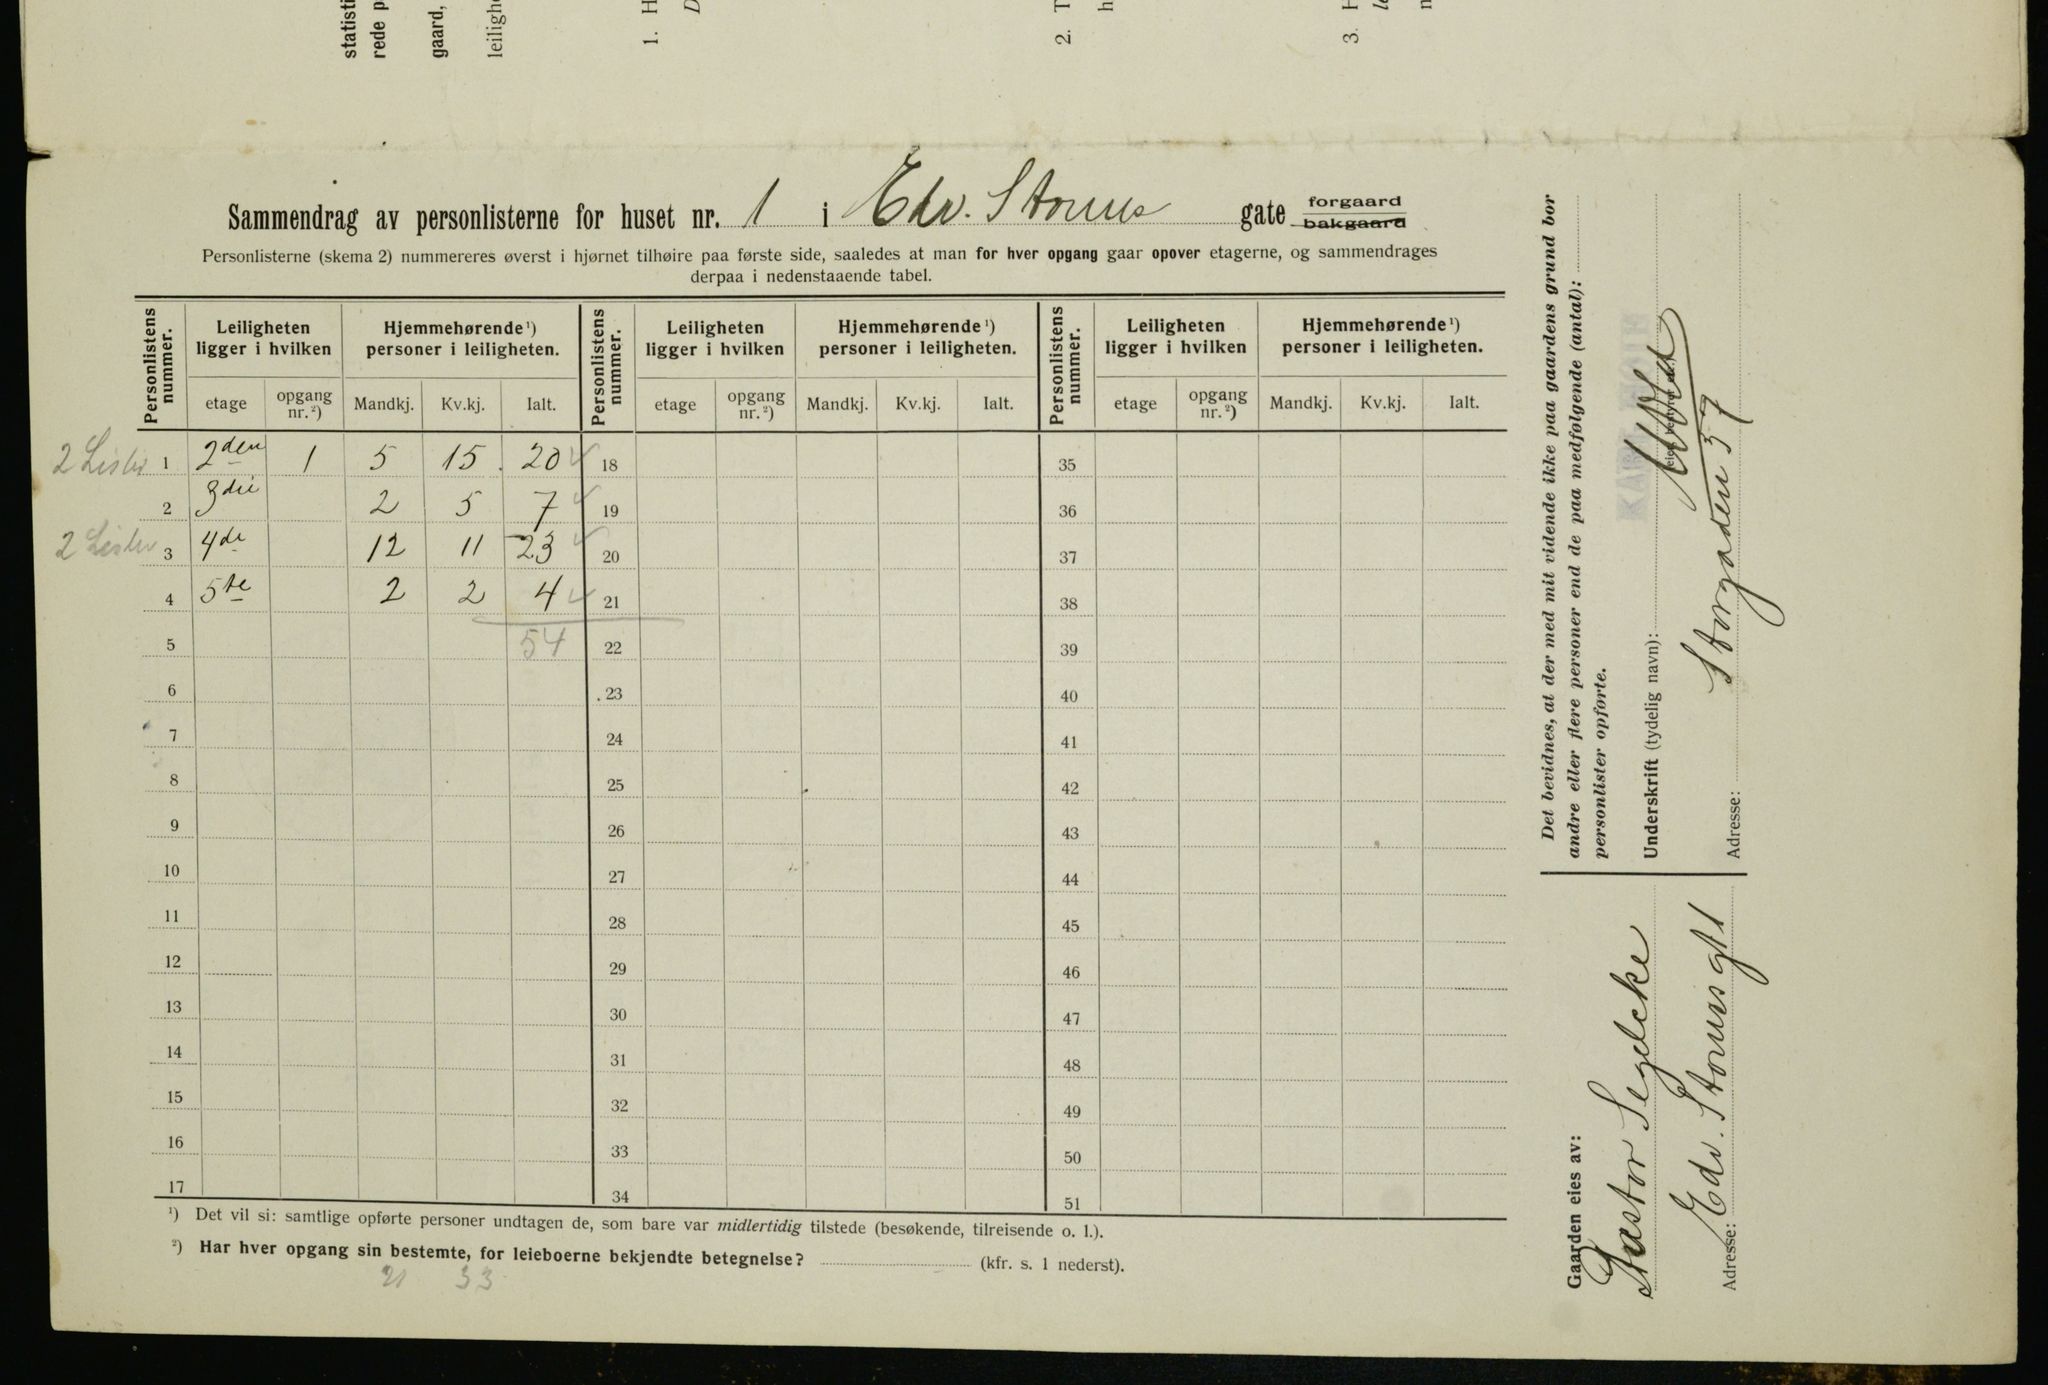 statisti
rede p
gaard,
leiligh
1. H
D
2. T
h
3. H
Sammendrag av personlisterne for huset nr. 1 i Edv. Storms gate forgaard bakgaard
Personlisterne (skema 2) nummereres øverst i hjørnet tilhøire paa første side, saaledes at man for hver opgang gaar opover etagerne, og sammendrages
derpaa i nedenstaaende tabel.
Personlistens nummer. Leiligheten ligger i hvilken Hjemmehørende ¹) personer i leiligheten. Personlistens nummer. Leiligheten ligger i hvilken Hjemmehørende ¹) personer i leiligheten. Personlistens nummer. Leiligheten ligger i hvilken Hjemmehørende ¹) personer i leiligheten.
etage opgang nr. ²) Mandkj. Kv.kj. Ialt. etage opgang nr. ²) Mandkj. Kv.kj. Ialt. etage opgang nr. ²) Mandkj. Kv.kj. Ialt.
2 Lister 1 2den 1 5 15 20 18 35
2 3die 2 5 7 19 36
2 Lister 3 4de 12 11 23 20 37
4 5te 2 2 4 21 38
5 54 22 39
6 23 40
7 24 41
8 25 42
9 26 43
10 27 44
11 28 45
12 29 46
13 30 47
14 31 48
15 32 49
16 33 50
17 34 51
¹) Det vil si: samtlige opførte personer undtagen de, som bare var midlertidig tilstede (besøkende, tilreisende o. l.).
²) Har hver opgang sin bestemte, for leieboerne bekjendte betegnelse? (kfr. s. 1 nederst).
21 33
Det bevidnes, at der med mit vidende ikke paa gaardens grund bor
andre eller flere personer end de paa medfølgende (antal):
personlister opførte.
Underskrift (tydelig navn):
Adresse: Storgaden 37
Gaarden eies av:
Pastor Segelcke
Adresse: Edv. Storms gt 1